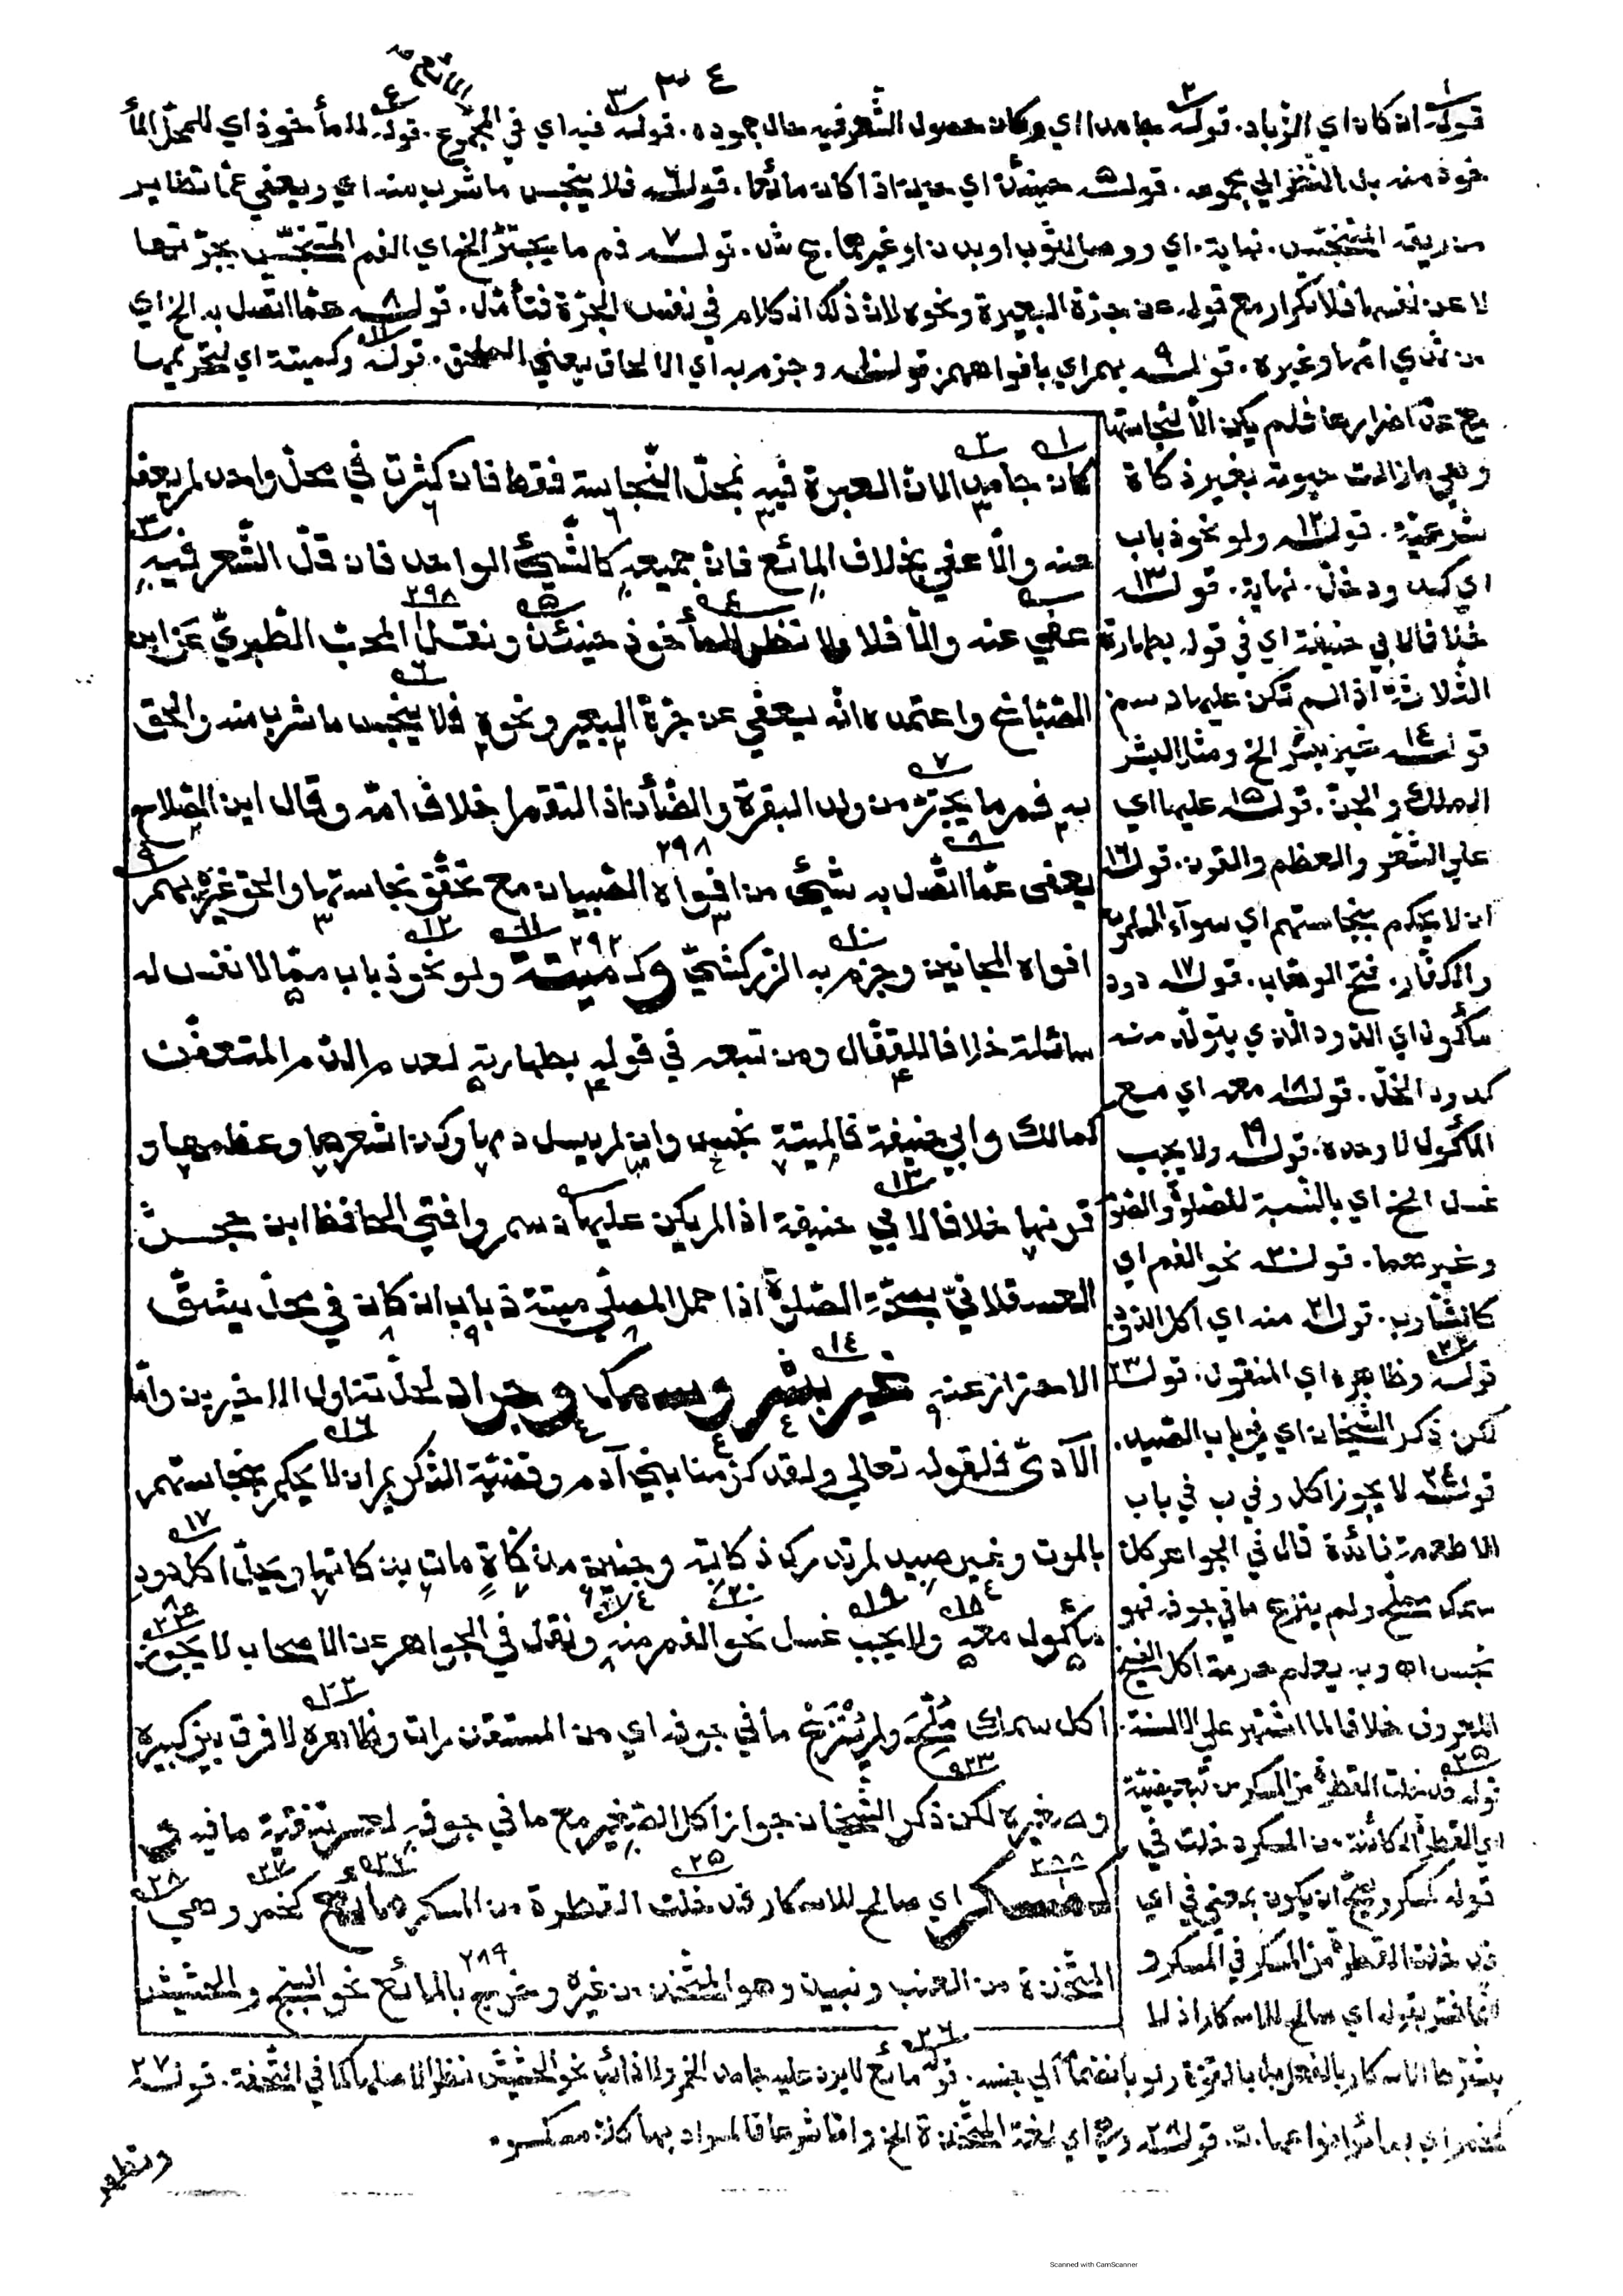 ٣٤
قوله ان كان اي الزباد. قوله جامدا اي وكان حصول الشعر فيه حال جموده. قوله فيه اي في المجموع. قوله للمأخوذ اي للمحل المأ
خوذ منه بل النظر الي مجموعه. قوله حينئذ اي حين اذا كان مائعا. قوله فلا ينجس ما شرب منه اي ويعفي عما تطاير
من ريقه المتنجس. نهاية. اي ووصل لثوب او بدن او غيرهما. ع ش. قوله فم ما يجتر الخ اي الفم المتنجس بجرتها
لا عن نفسها فلا تكرار مع قوله عن جرة البعيرة ونحوه لان ذلك الكلام في نفس الجرة فتأمل. قوله عما اتصل به الخ اي
من ثدي امها وغيره. قوله بهم اي بافواههم. قوله وجزم به اي الالحاق يعني الملحق. قوله وكميتة اي لتحريمها
مع عدم اضرارها فلم يكن الا لنجاستها
وهي ما زالت حيوته بغير ذكاة
شرعية. قوله ولو نحو ذباب
اي كدود خل. نهاية. قوله
خلافا لابي حنيفة اي في قوله بطهارة
الثلاثة اذا لم تكن عليها دسم
قوله غير بشر الخ ومثل البشر
الملك والجن. قوله عليها اي
علي الشعر والعظم والقرن. قوله
ان لا يحكم بنجاستهم اي سواء المسلمون
والكفار. فتح الوهاب. قوله دود
مأكول اي الدود الذي يتولد منه
كدود الخل. قوله معه اي مع
المأكول لا وحده. قوله ولا يجب
غسل الخ اي بالنسبة للصلوة والضوء
وغيرهما. قوله نحو الفم اي
كالشارب. قوله منه اي اكل الذي
قوله وظاهره اي المنقول. قوله
لكن ذكر الشيخان اي في باب الصيد.
قوله لا يجوز اكل وفي ب في باب
الاطعمة فائدة قال في الجواهر كل
سمك مملح ولم ينزع ما في جوفه فهو
نجس اه وبه يعلم حرمة اكل الفسيخ
المعروف خلافا لما اشتهر علي الالسنة.
قوله فدخلت القطرة من المسكر من تبعيضية
اي القطرة الكائنة من المسكر دخلت في
قوله كمسكر ويصح ان يكون بمعني في اي
فدخلت القطرة من المسكر في المسكر و
انما فسر بقوله اي صالح للاسكار اذ لا
كان جامدا لان العبرة فيه بمحل النجاسة فقط فان كثرت في محل واحد لم يعف
عنه والا عفي بخلاف المائع فان جميعه كالشيئ الواحد فان قل الشعر فيه
عفي عنه والا فلا ولا نظر للمأخوذ حينئذ ونقل المحب الطبري عن ابن
الصباغ واعتمده انه يعفي عن جرة البعير ونحوه فلا ينجس ما شرب منه والحق
به فم ما يجتر من ولد البقرة والضأن اذا التقم اخلاف امه وقال ابن الصلاح
يعفى عما اتصل به شيئ من افواه الصبيان مع تحقق نجاستها والحق غيره بهم
افواه المجانين وجزم به الزركشي وكميتة ولو نحو ذباب مما لا نفس له
سائلة خلافا للقفال ومن تبعه في قوله بطهارته لعدم الدم المتعفن
كمالك وابي حنيفة فالميتة نجس وان لم يسل دمها وكذا شعرها وعظمها و
قرنها خلافا لابي حنيفة اذا لم يكن عليها دسم وافتي الحافظ ابن حجر
العسقلاني بصحة الصلوة اذا حمل المصلي ميتة ذباب ان كان في محل يشق
الاحتراز عنه غير بشر وسمك وجراد لحل تناول الاخيرين واما
الآدمي فلقوله تعالي ولقد كرمنا بني آدم وقضية التكريم ان لا يحكم بنجاستهم
بالموت وغير صيد لم تدرك ذكاته وجنين مذكاة مات بذكاتها ويحل اكل دود
مأكول معه ولا يجب غسل نحو الفم منه ونقل في الجواهر عن الاصحاب لا يجوز
اكل سمك ملح ولم ينزع ما في جوفه اي من المستقذرات وظاهره لا فرق بين كبيره
وصغيره لكن ذكر الشيخان جواز اكل الصغير مع ما في جوفه لعسر تنقية ما فيه و
كمسكر اي صالح للاسكار فدخلت القطرة من المسكر مائع كخمر وهي
المتخذة من العنب ونبيذ وهو المتخذ من غيره وخرج بالمائع نحو البنج والحشيش
يشترط الاسكار بالفعل بل بالقوة ولو بانضمامه الي جنسه. قوله مائع لا يرد عليه جامد الخمر ولا ذائب نحو الحشيش نظرا لاصلهما كما في التحفة. قوله
كخمر اي بسائر انواعها. ت. قوله وهي اي لغة المتخذة الخ واما شرعا فالمراد بها كل مسكر
وتطهر
Scanned with CamScanner